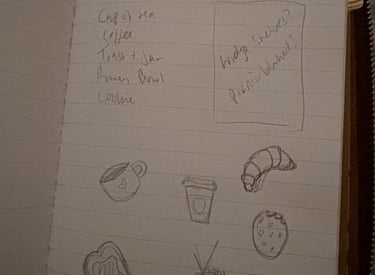 Cup of tea
Coffee
Toast + Jam
Ramen Bowl
Cookie
fridge shelves?
Picnic blanket?